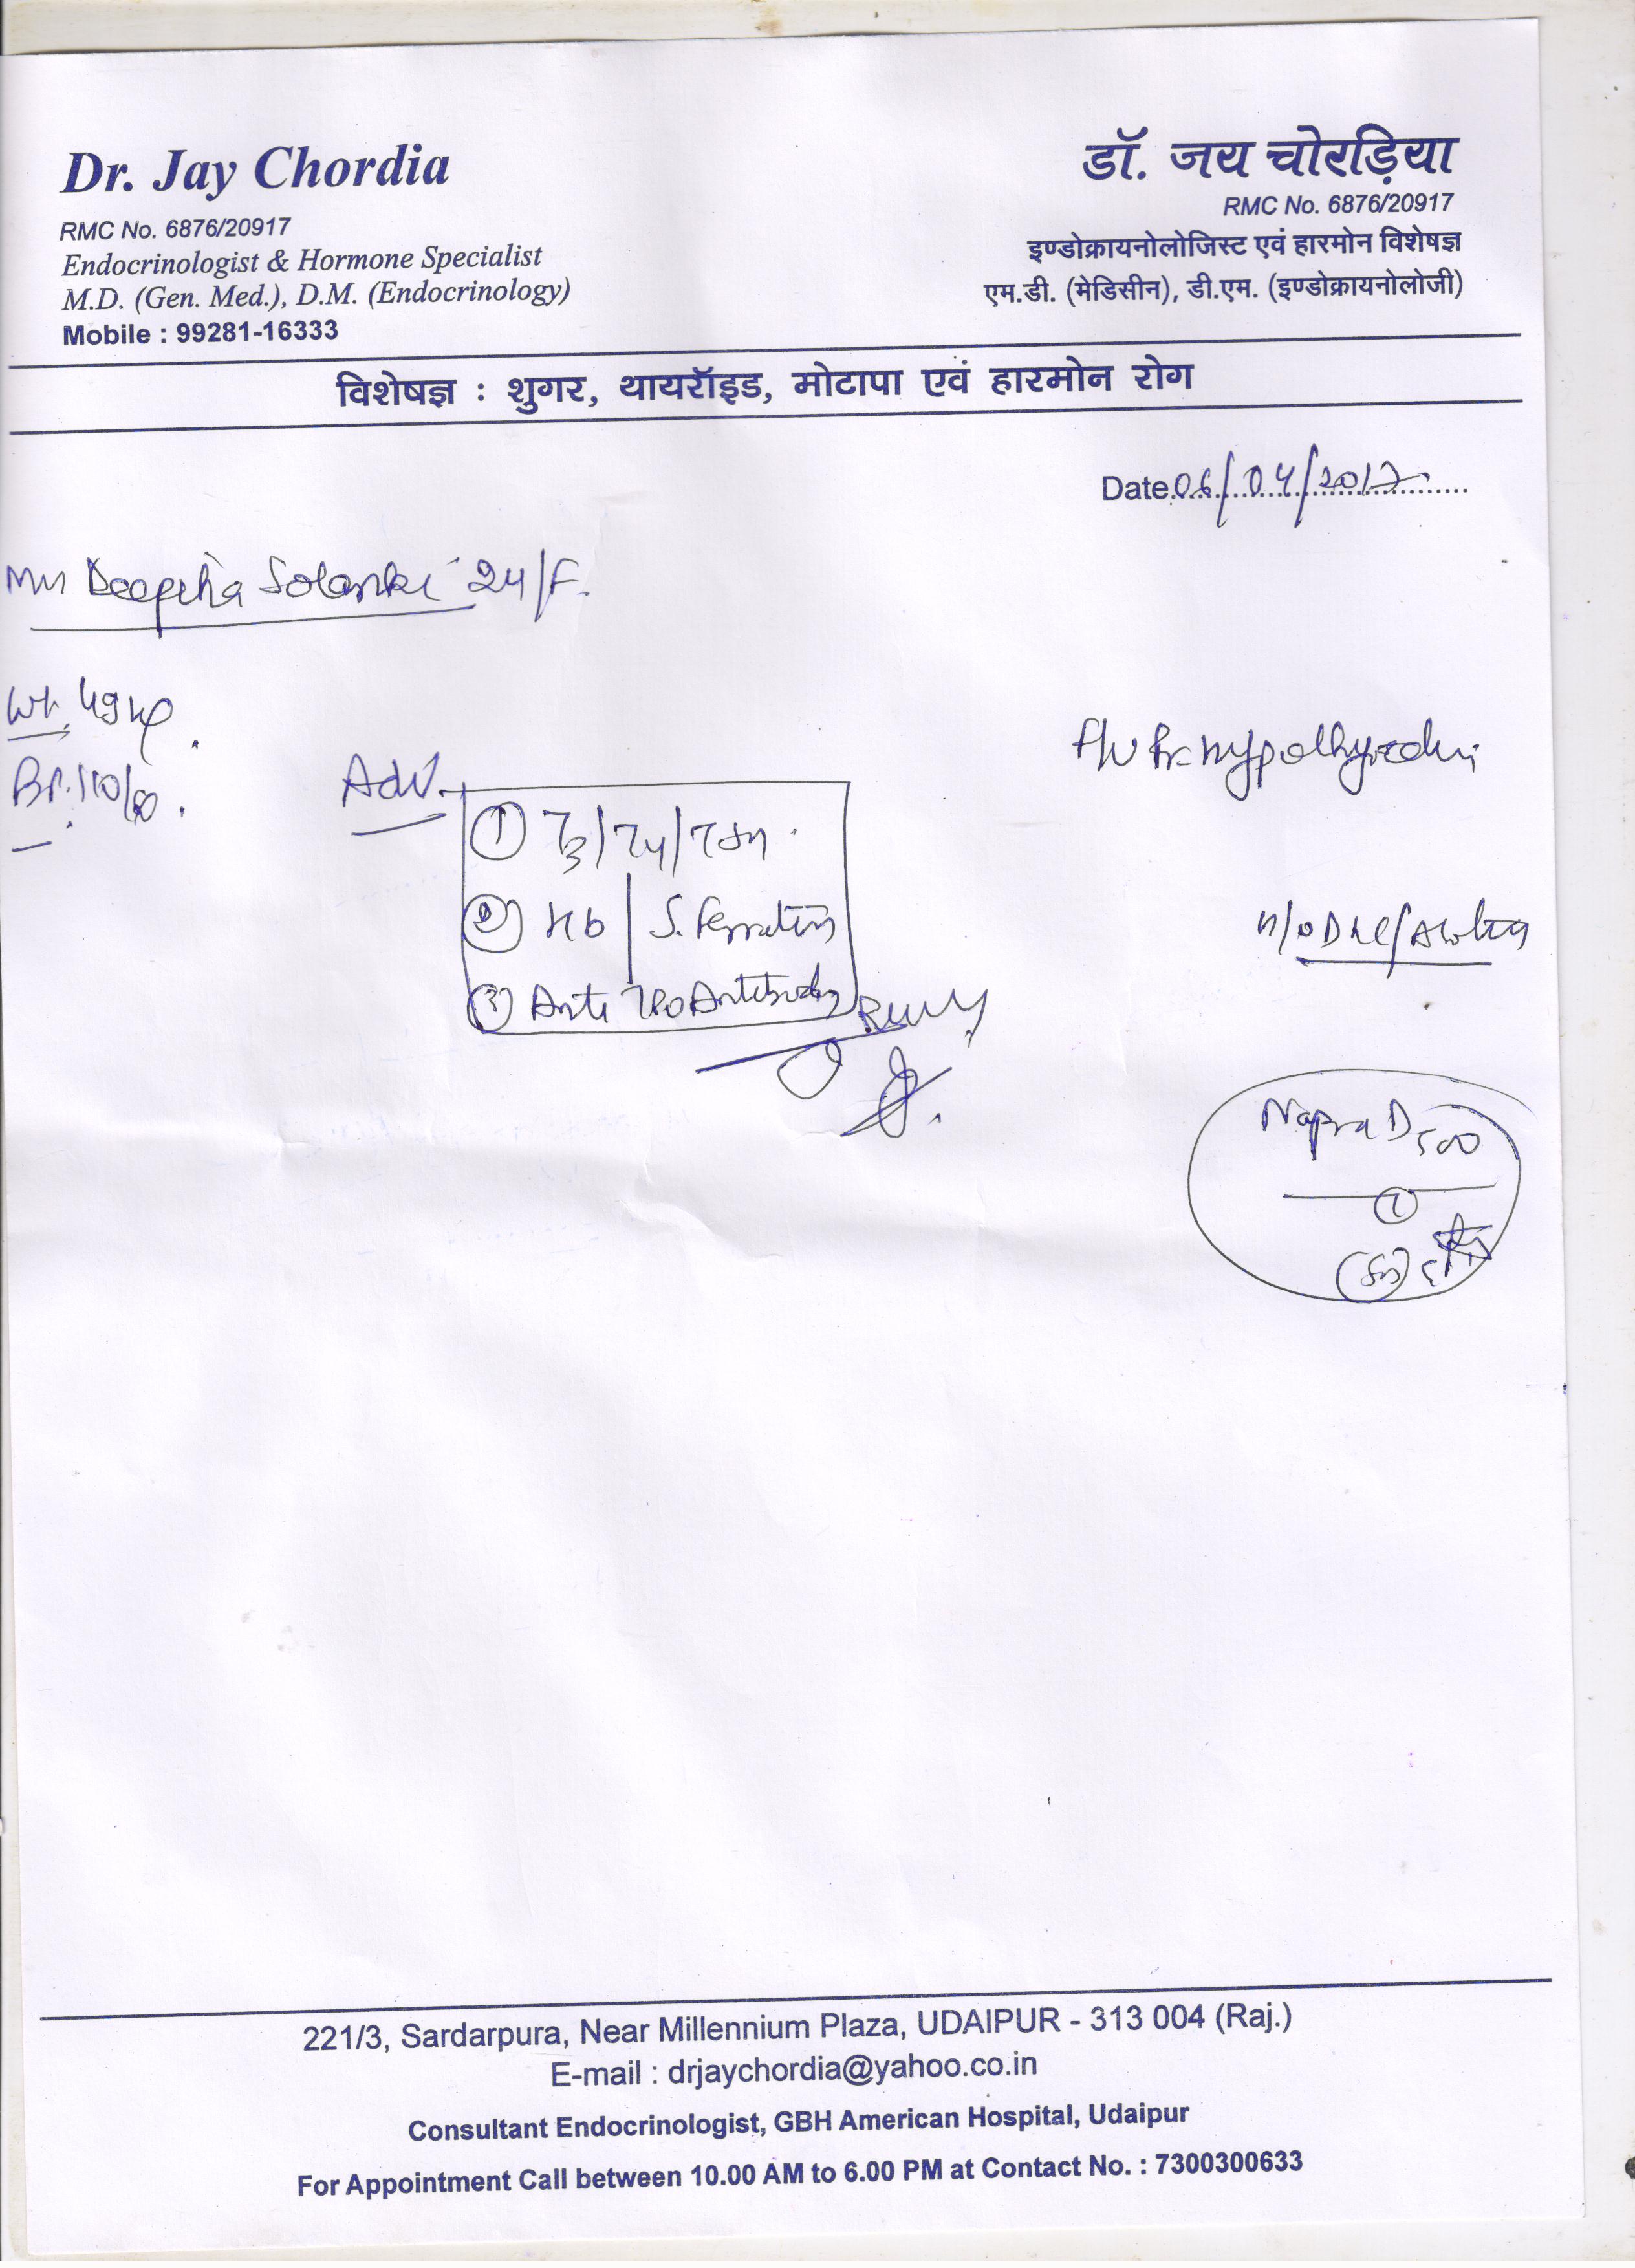 Dr. Jay Chordia
RMC No. 6876/20917
Endocrinologist & Hormone Specialist
M.D. (Gen. Med.), D.M. (Endocrinology)
Mobile : 99281-16333
डॉ. जय चोरड़िया
RMC No. 6876/20917
इण्डोक्रायनोलोजिस्ट एवं हारमोन विशेषज्ञ
एम.डी. (मेडिसीन), डी.एम. (इण्डोक्रायनोलोजी)
विशेषज्ञ : शुगर, थायरॉइड, मोटापा एवं हारमोन रोग
Date 06/04/2017
Solanki 24/F.
Wt. 49 kg.
BP. 110/80.
Adv.
① T3/T4/TSH.
② Hb | S. Ferritin
③ Anti TPO Antibody
Napra D 500
①
221/3, Sardarpura, Near Millennium Plaza, UDAIPUR - 313 004 (Raj.)
E-mail : drjaychordia@yahoo.co.in
Consultant Endocrinologist, GBH American Hospital, Udaipur
For Appointment Call between 10.00 AM to 6.00 PM at Contact No. : 7300300633